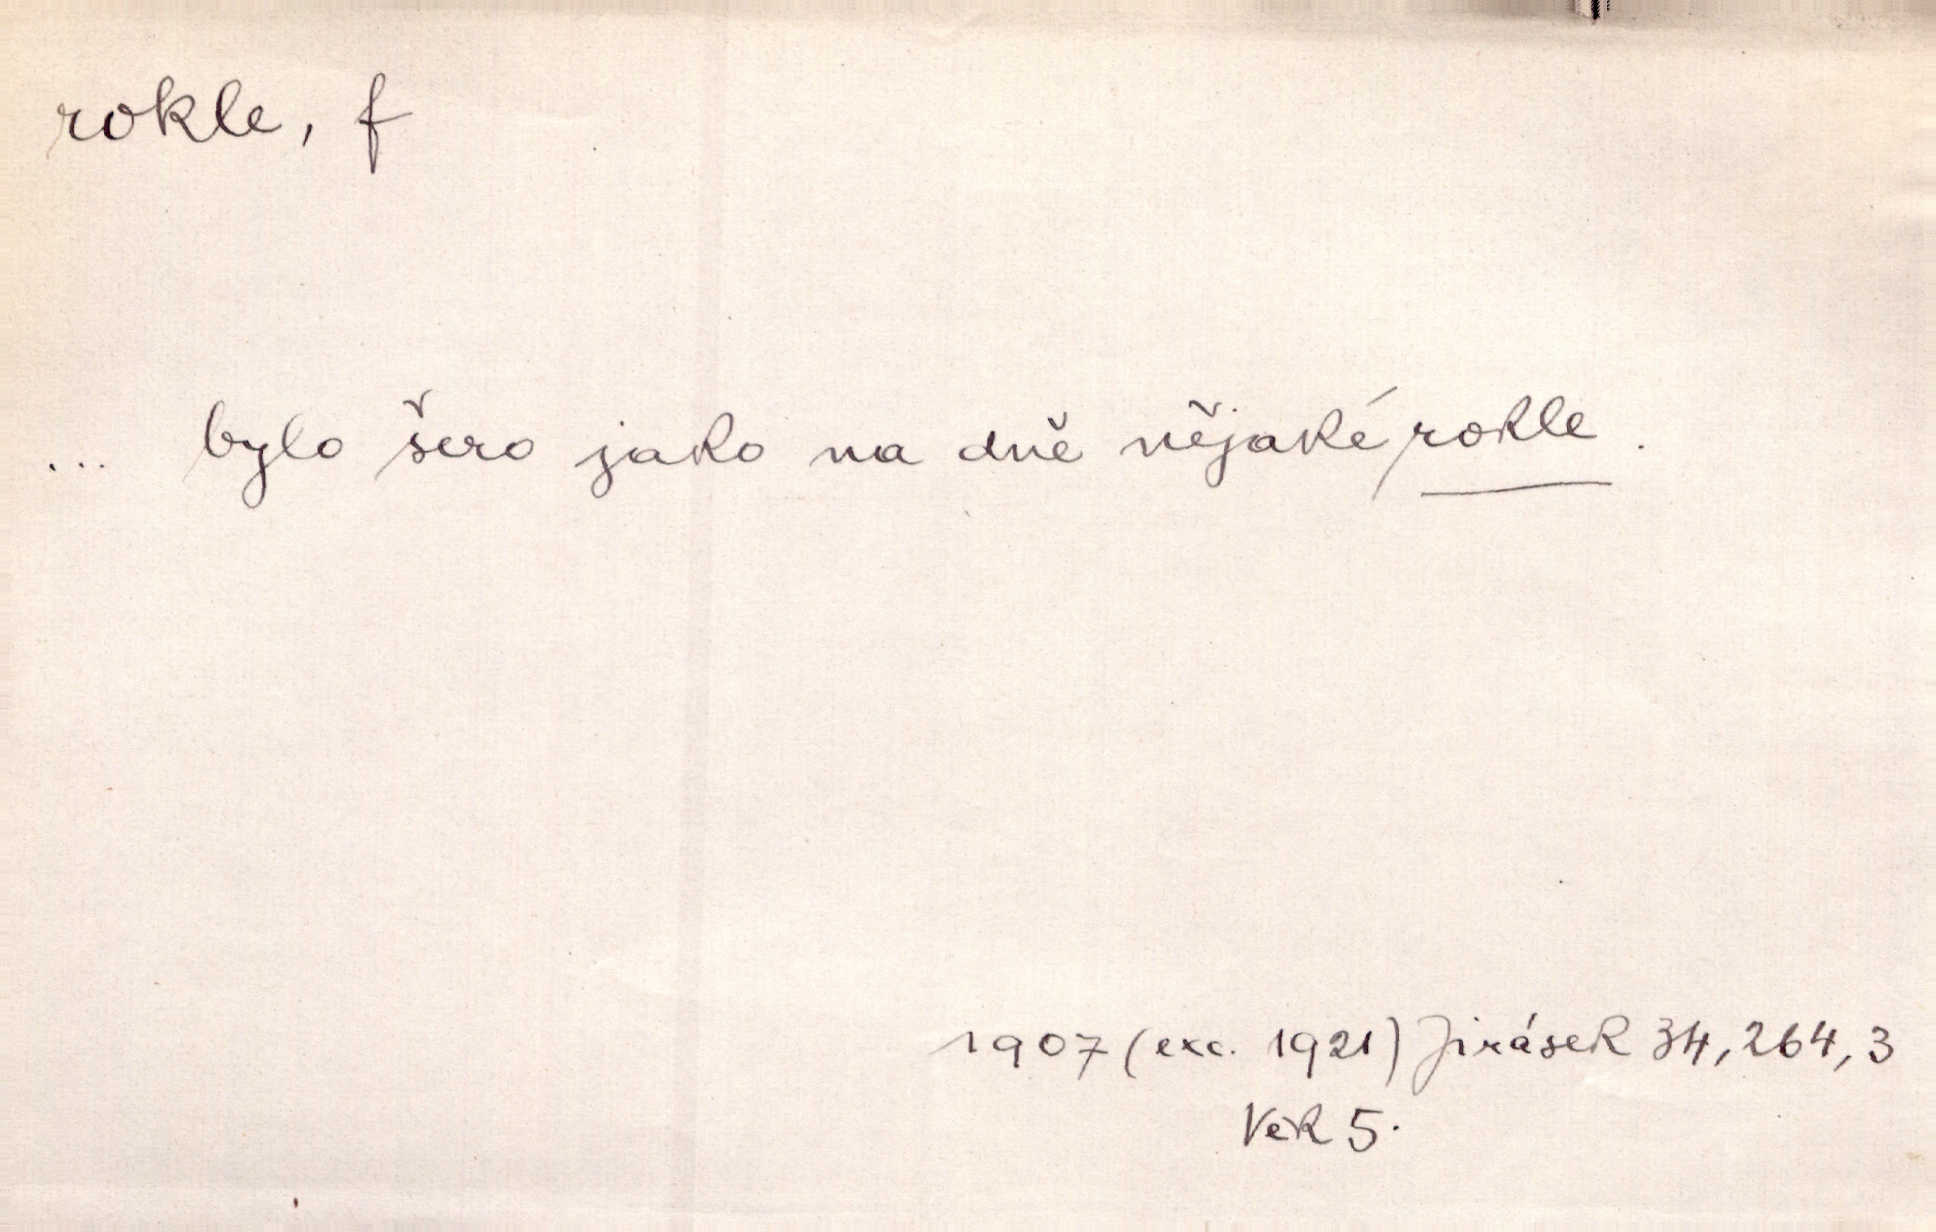 rokle, f
... bylo šero jako na dně nějaké rokle.
1907 (exc. 1921) Jirásek 34, 264, 3
Vek 5.